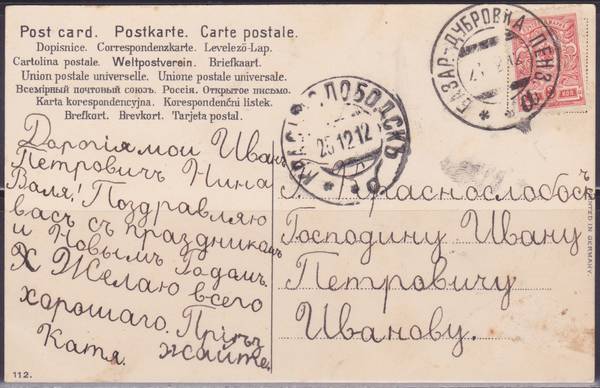 Post card. Postkarte. Carte postale.
Dopisnice. Correspondenzkarte. Levelező-Lap.
Cartolina postale. Weltpostverein. Briefkaart.
Union postale universelle. Unione postale universale.
Всемірный почтовый союзъ. Россія. Открытое письмо.
Karta korespondencyjna. Korespondenční listek.
Brefkort. Brevkort. Tarjeta postal.
Дорогія мои Иванъ
Петровичъ Нина
Валя! Поздравляю
васъ съ праздникомъ
и Новымъ Годамъ.
Х Желаю всего
хорошаго. Пріѣз
жайте.
Катя.
112.
КРАСНОСЛОБОДСКЪ
25 12 12
БАЗАР-ДУБРОВКА ПЕНЗ.
12
КОП
г. Краснослободскъ
Господину Ивану
Петровичу
Иванову.
PRINTED IN GERMANY.